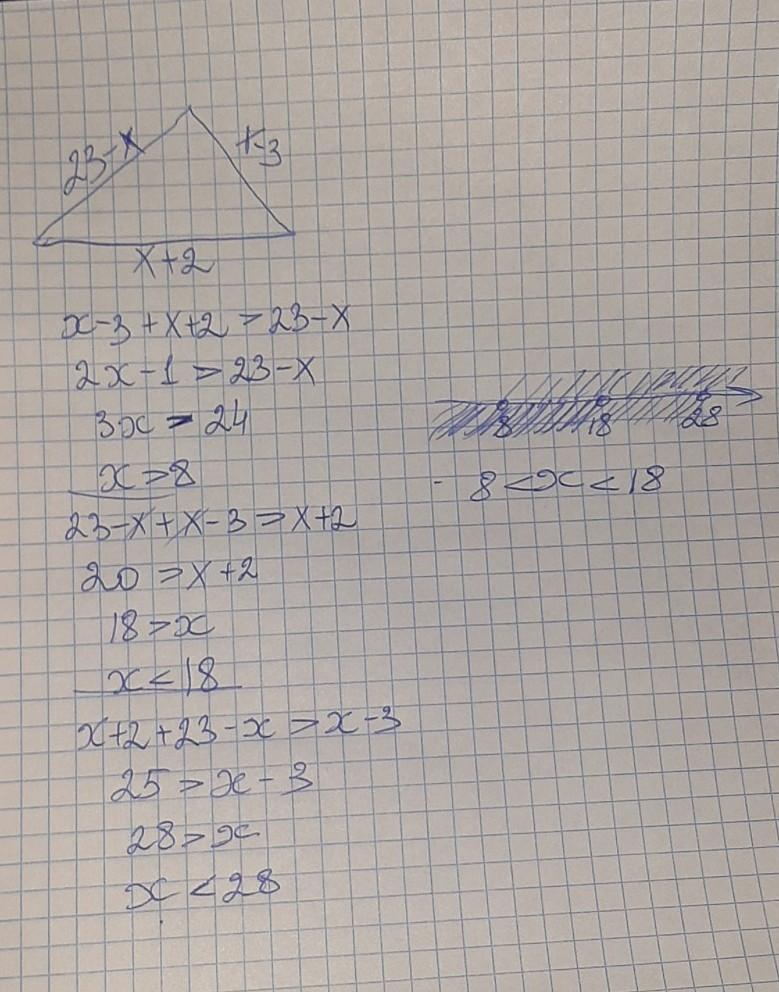 23-x
x-3
x+2
x-3+x+2>23-x
2x-1>23-x
3x>24
x>8
23-x+x-3>x+2
20>x+2
18>x
x<18
x+2+23-x>x-3
25>x-3
28>x
x<28
8 18 28
- 8<x<18